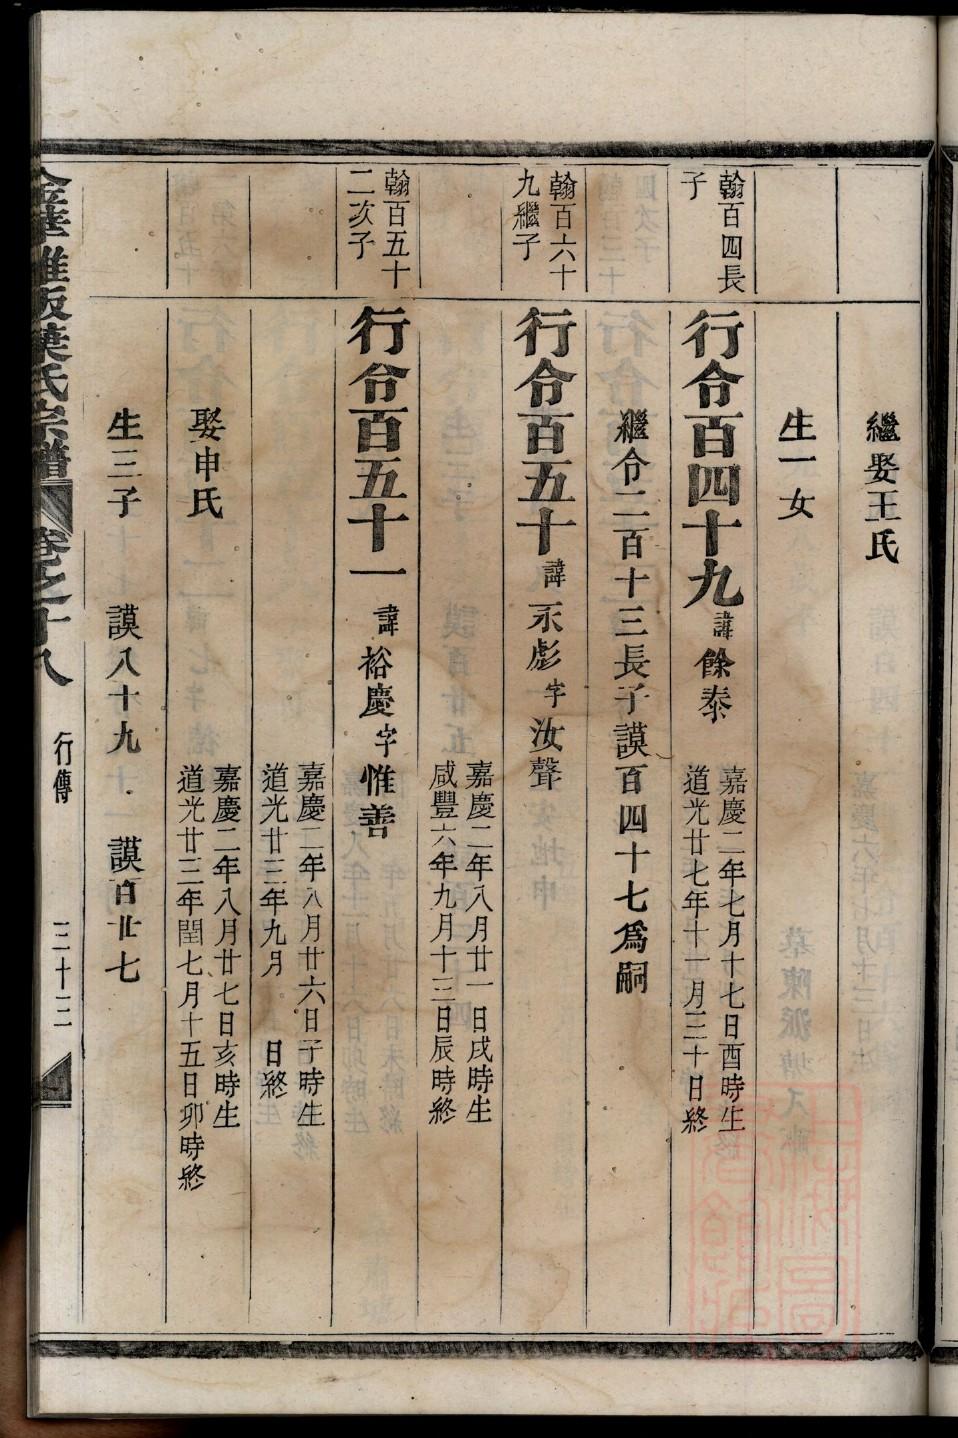 繼娶王氏
生一女
翰百四長
子
行令百四十九諱餘泰
嘉慶二年七月十七日酉時生
道光廿七年十一月三十日終
繼令二百十三長子謨百四十七爲嗣
翰百六十
九繼子
行令百五十諱永彪字汝聲
嘉慶二年八月廿一日戌時生
咸豐六年九月十三日辰時終
翰百五十
二次子
行令百五十一諱裕慶字惟善
嘉慶二年八月廿六日子時生
道光廿三年九月 日終
娶申氏
嘉慶二年八月廿七日亥時生
道光廿三年閏七月十五日卯時終
生三子 謨八十九 謨百廿七
金華雅畈葉氏宗譜 卷之十八 行傳 三十三